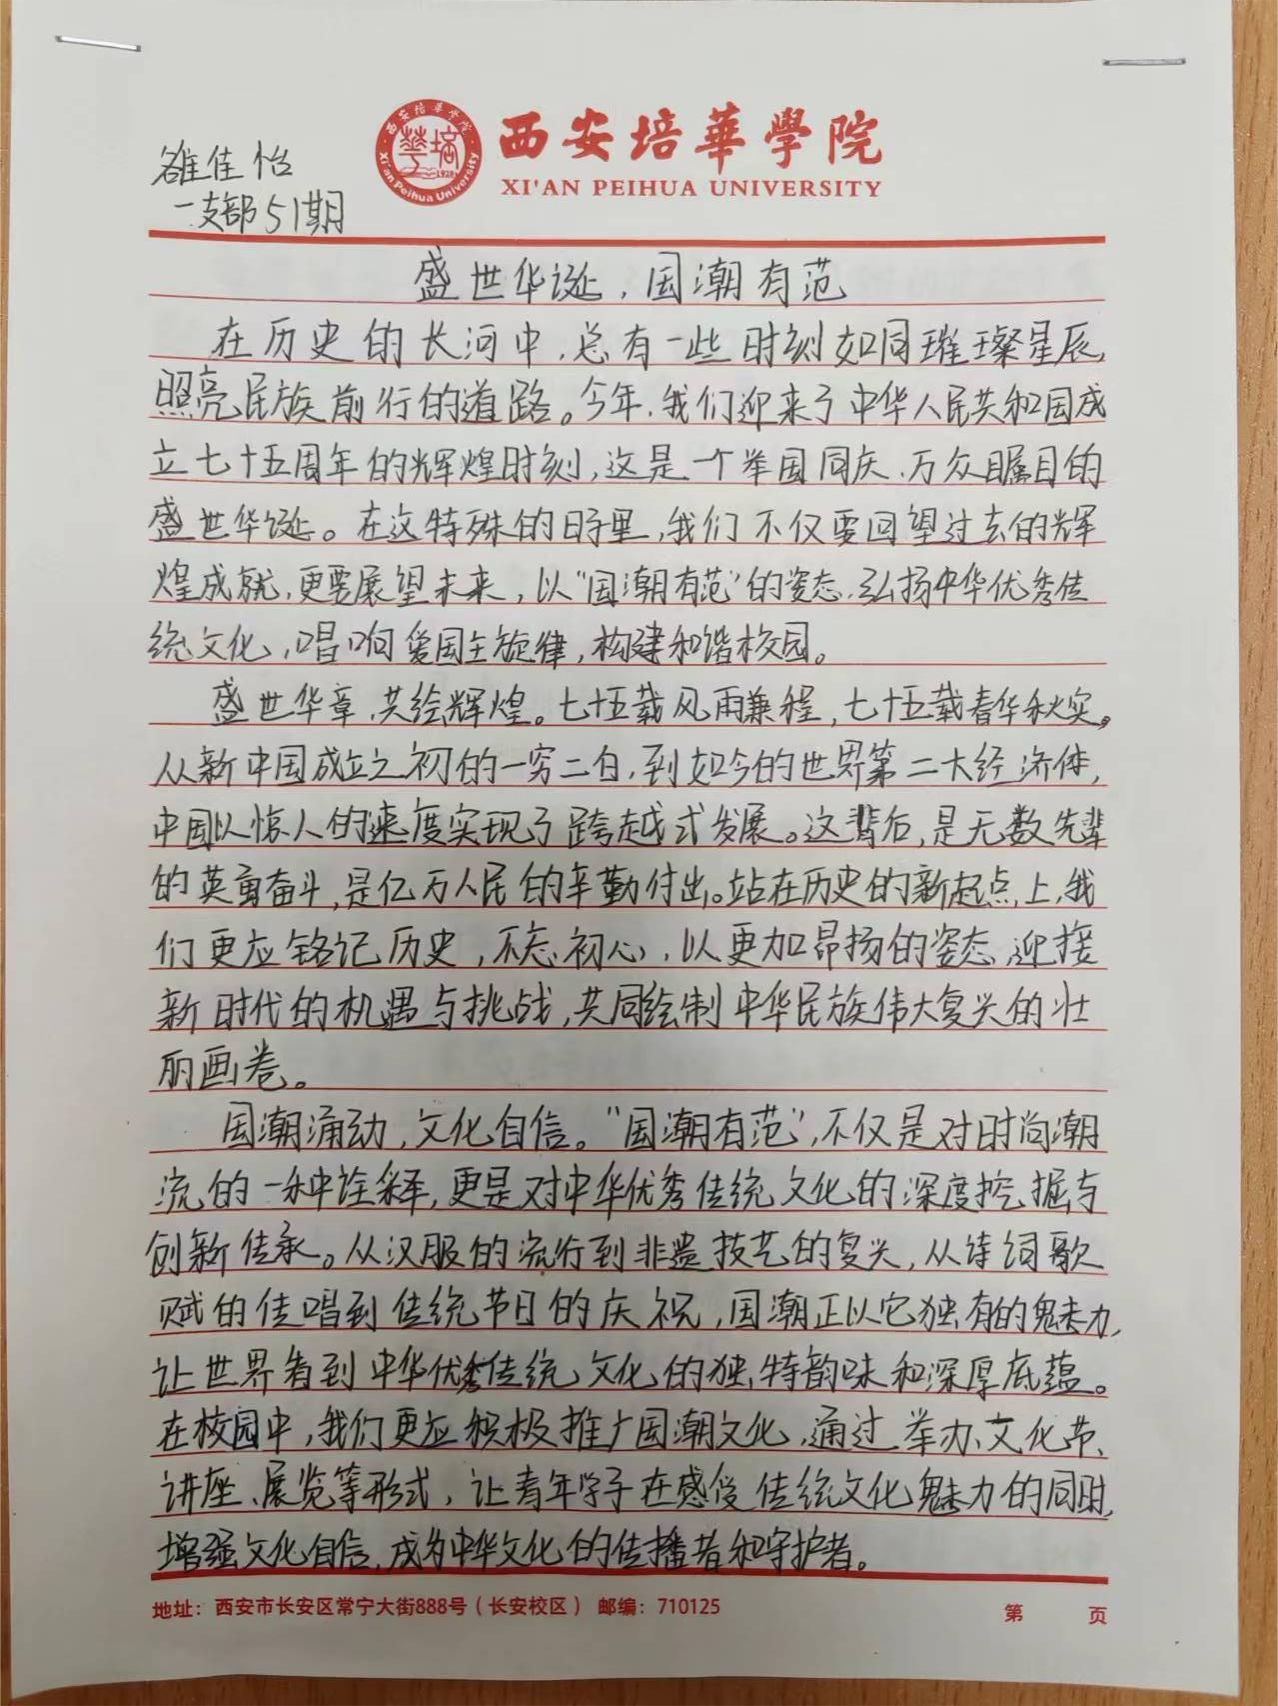 西安培華學院
XI'AN PEIHUA UNIVERSITY
西安培華學院
Xi'an Peihua University
1928
雒佳怡
一支部51期
盛世华诞，国潮有范
在历史的长河中，总有一些时刻如同璀璨星辰，
照亮民族前行的道路。今年，我们迎来了中华人民共和国成
立七十五周年的辉煌时刻，这是一个举国同庆、万众瞩目的
盛世华诞。在这特殊的日子里，我们不仅要回望过去的辉
煌成就，更要展望未来，以“国潮有范”的姿态，弘扬中华优秀传
统文化，唱响爱国主旋律，构建和谐校园。
盛世华章，共绘辉煌。七十五载风雨兼程，七十五载春华秋实。
从新中国成立之初的一穷二白，到如今的世界第二大经济体，
中国以惊人的速度实现了跨越式发展。这背后，是无数先辈
的英勇奋斗，是亿万人民的辛勤付出。站在历史的新起点上，我
们更应铭记历史，不忘初心，以更加昂扬的姿态，迎接
新时代的机遇与挑战，共同绘制中华民族伟大复兴的壮
丽画卷。
国潮涌动，文化自信。“国潮有范”，不仅是对时尚潮
流的一种诠释，更是对中华优秀传统文化的深度挖掘与
创新传承。从汉服的流行到非遗技艺的复兴，从诗词歌
赋的传唱到传统节日的庆祝，国潮正以它独有的魅力，
让世界看到中华优秀传统文化的独特韵味和深厚底蕴。
在校园中，我们更应积极推广国潮文化，通过举办文化节、
讲座、展览等形式，让青年学子在感受传统文化魅力的同时，
增强文化自信，成为中华文化的传播者和守护者。
地址：西安市长安区常宁大街888号（长安校区） 邮编：710125
第 页